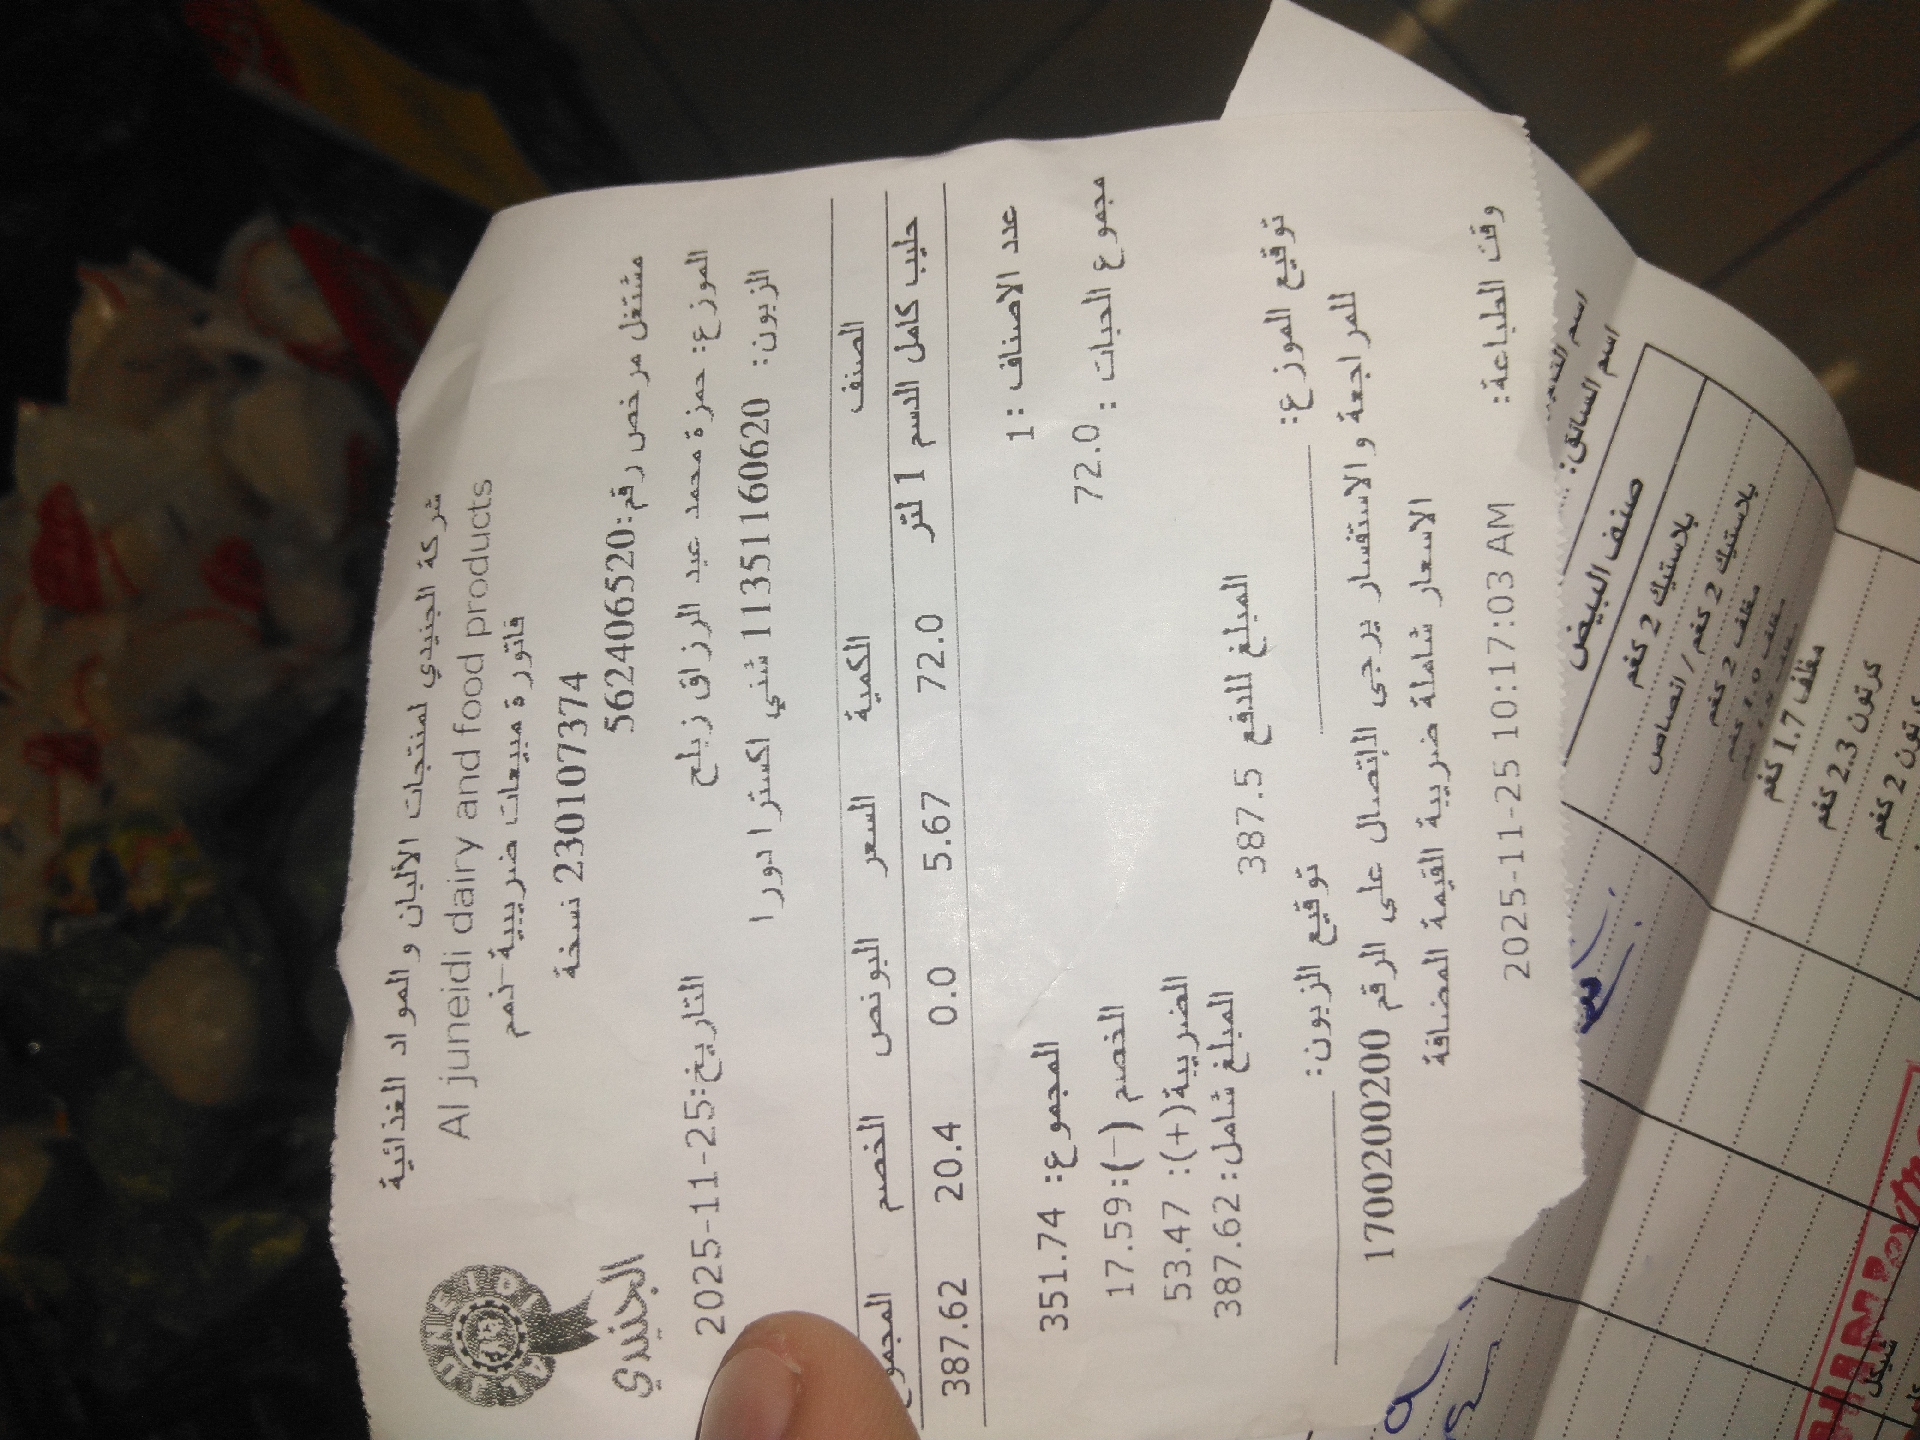 شركة الجنيدي لمنتجات الألبان والمواد الغذائية
Al juneidi dairy and food products
فاتورة مبيعات ضريبية-ذمم
230107374 نسخة
AL JUNEIDI
الجنيدي
مشتغل مرخص رقم:562406520
الموزع: حمزة محمد عبد الرزاق زبلح
التاريخ:2025-11-25
الزبون: 11351160620 شني اكسترا دورا
الصنف الكمية السعر البونص الخصم المجموع
حليب كامل الدسم 1 لتر 72.0 5.67 0.0 20.4 387.62
عدد الاصناف : 1
المجموع: 351.74
مجموع الحبات : 72.0
الخصم (-):17.59
الضريبة(+): 53.47
المبلغ شامل: 387.62
المبلغ للدفع 387.5
توقيع الموزع:
توقيع الزبون:
للمراجعة والاستفسار يرجى الإتصال على الرقم 1700200200
الاسعار شاملة ضريبة القيمة المضافة
وقت الطباعة: 2025-11-25 10:17:03 AM
اسم السائق:
صنف البيض
بلاستيك 2 كغم
بلاستيك 2 كغم / انصاص
مغلف 2 كغم
مغلف 1.7 كغم
كرتون 2.3 كغم
كرتون 2 كغم
شيكل